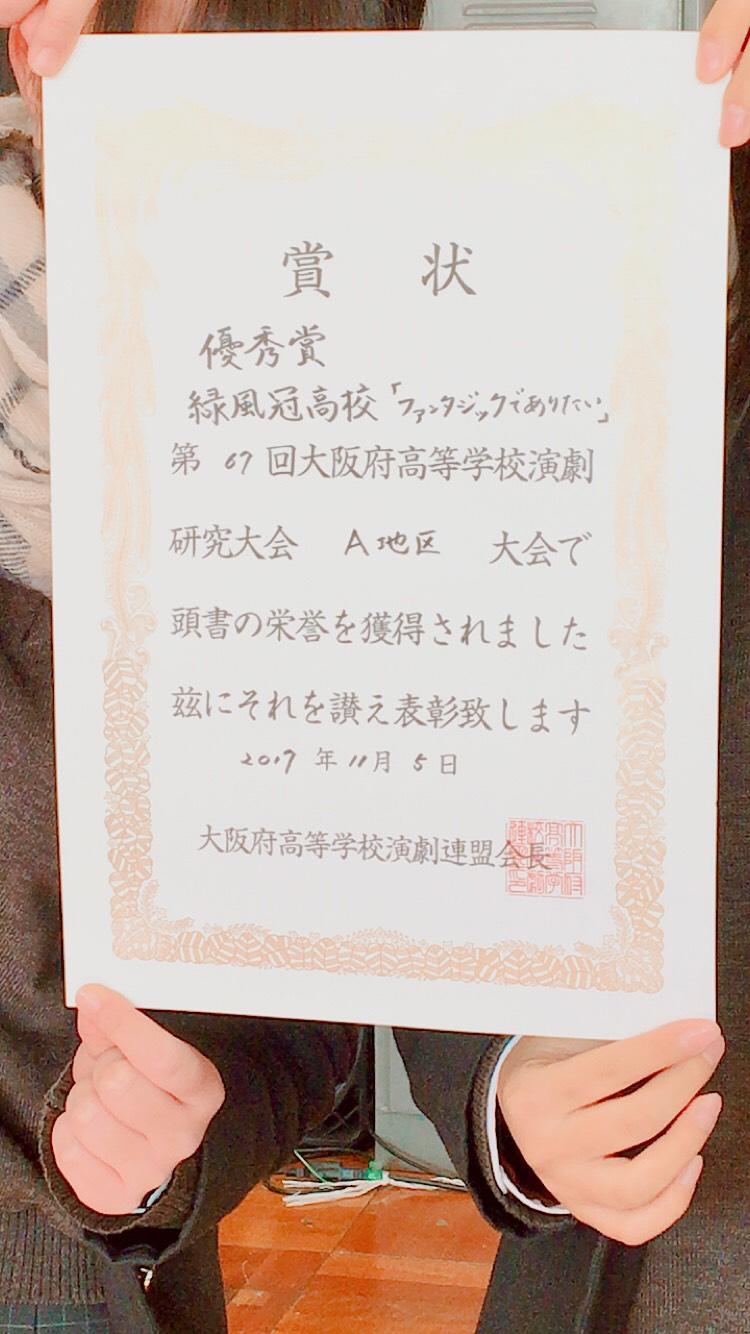 賞状
優秀賞
緑風冠高校「ファンタジックでありたい」
第67回大阪府高等学校演劇
研究大会 A地区 大会で
頭書の栄誉を獲得されました
茲にそれを讃え表彰致します
2017年11月5日
大阪府高等学校演劇連盟会長